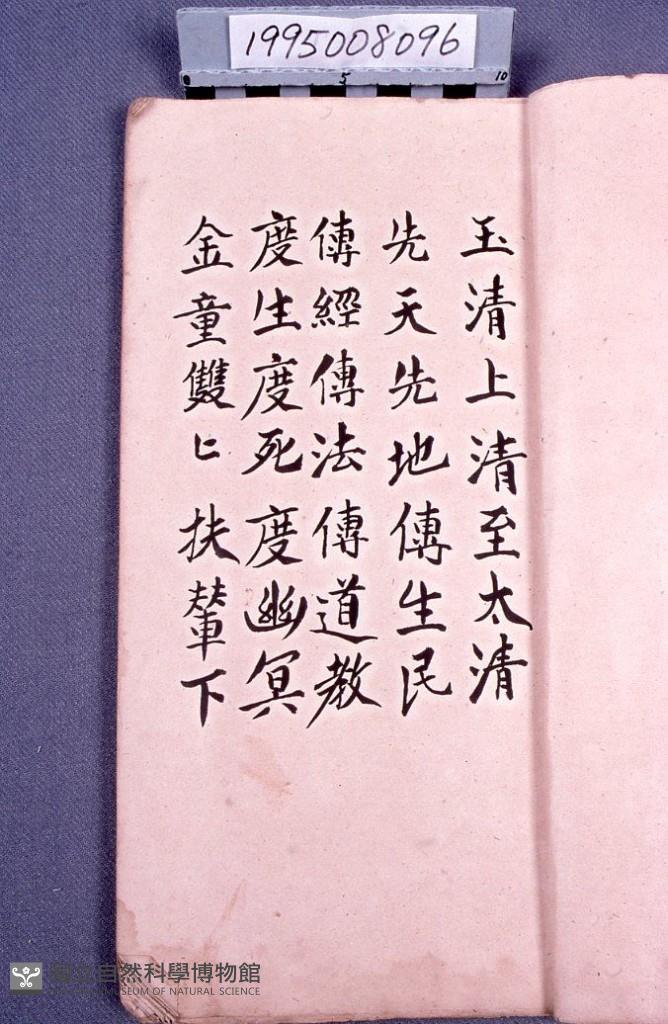 1995008096
0 5 10
玉清上清至太清
先天先地傳生民
傳經傳法傳道教
度生度死度幽冥
金童雙匕扶輦下
國立自然科學博物館
MUSEUM OF NATURAL SCIENCE